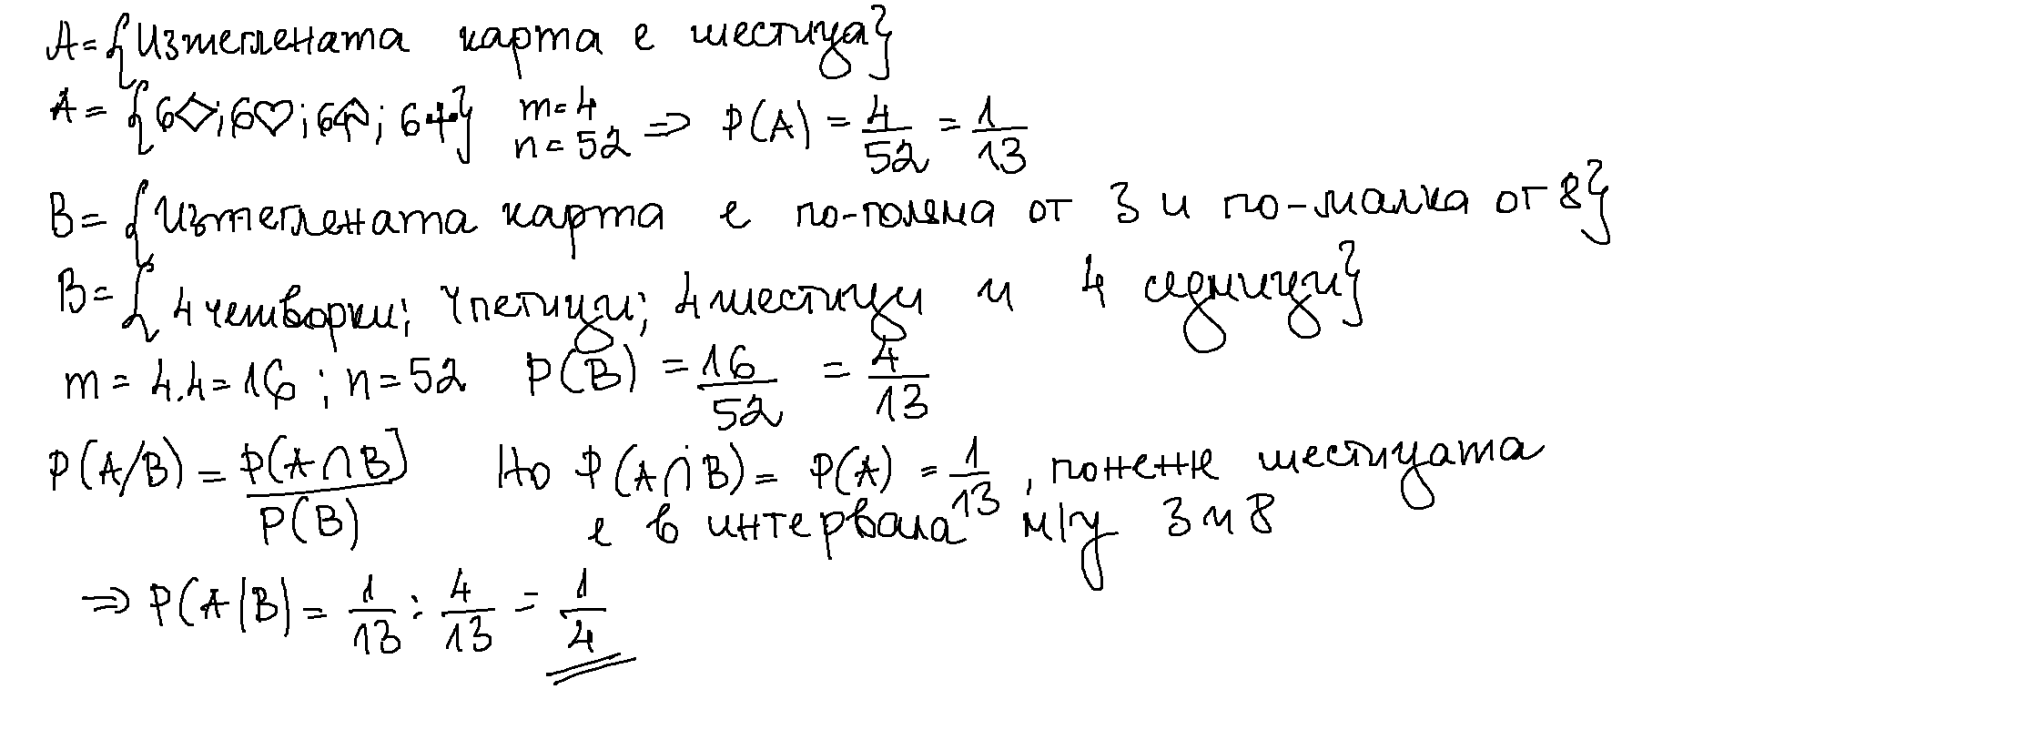 A={Изтеглената карта е шестица}
A={6♢;6♡;6♤;6♣} m=4 n=52 => P(A)=4/52=1/13
B={Изтеглената карта е по-голяма от 3 и по-малка от 8}
B={4 четворки; 4 петици; 4 шестици и 4 седмици}
m=4.4=16; n=52 P(B)=16/52=4/13
P(A/B)=P(A∩B)/P(B) Но P(A∩B)=P(A)=1/13, понеже шестицата
е в интервала м/у 3 и 8
=> P(A|B)=1/13:4/13=1/4